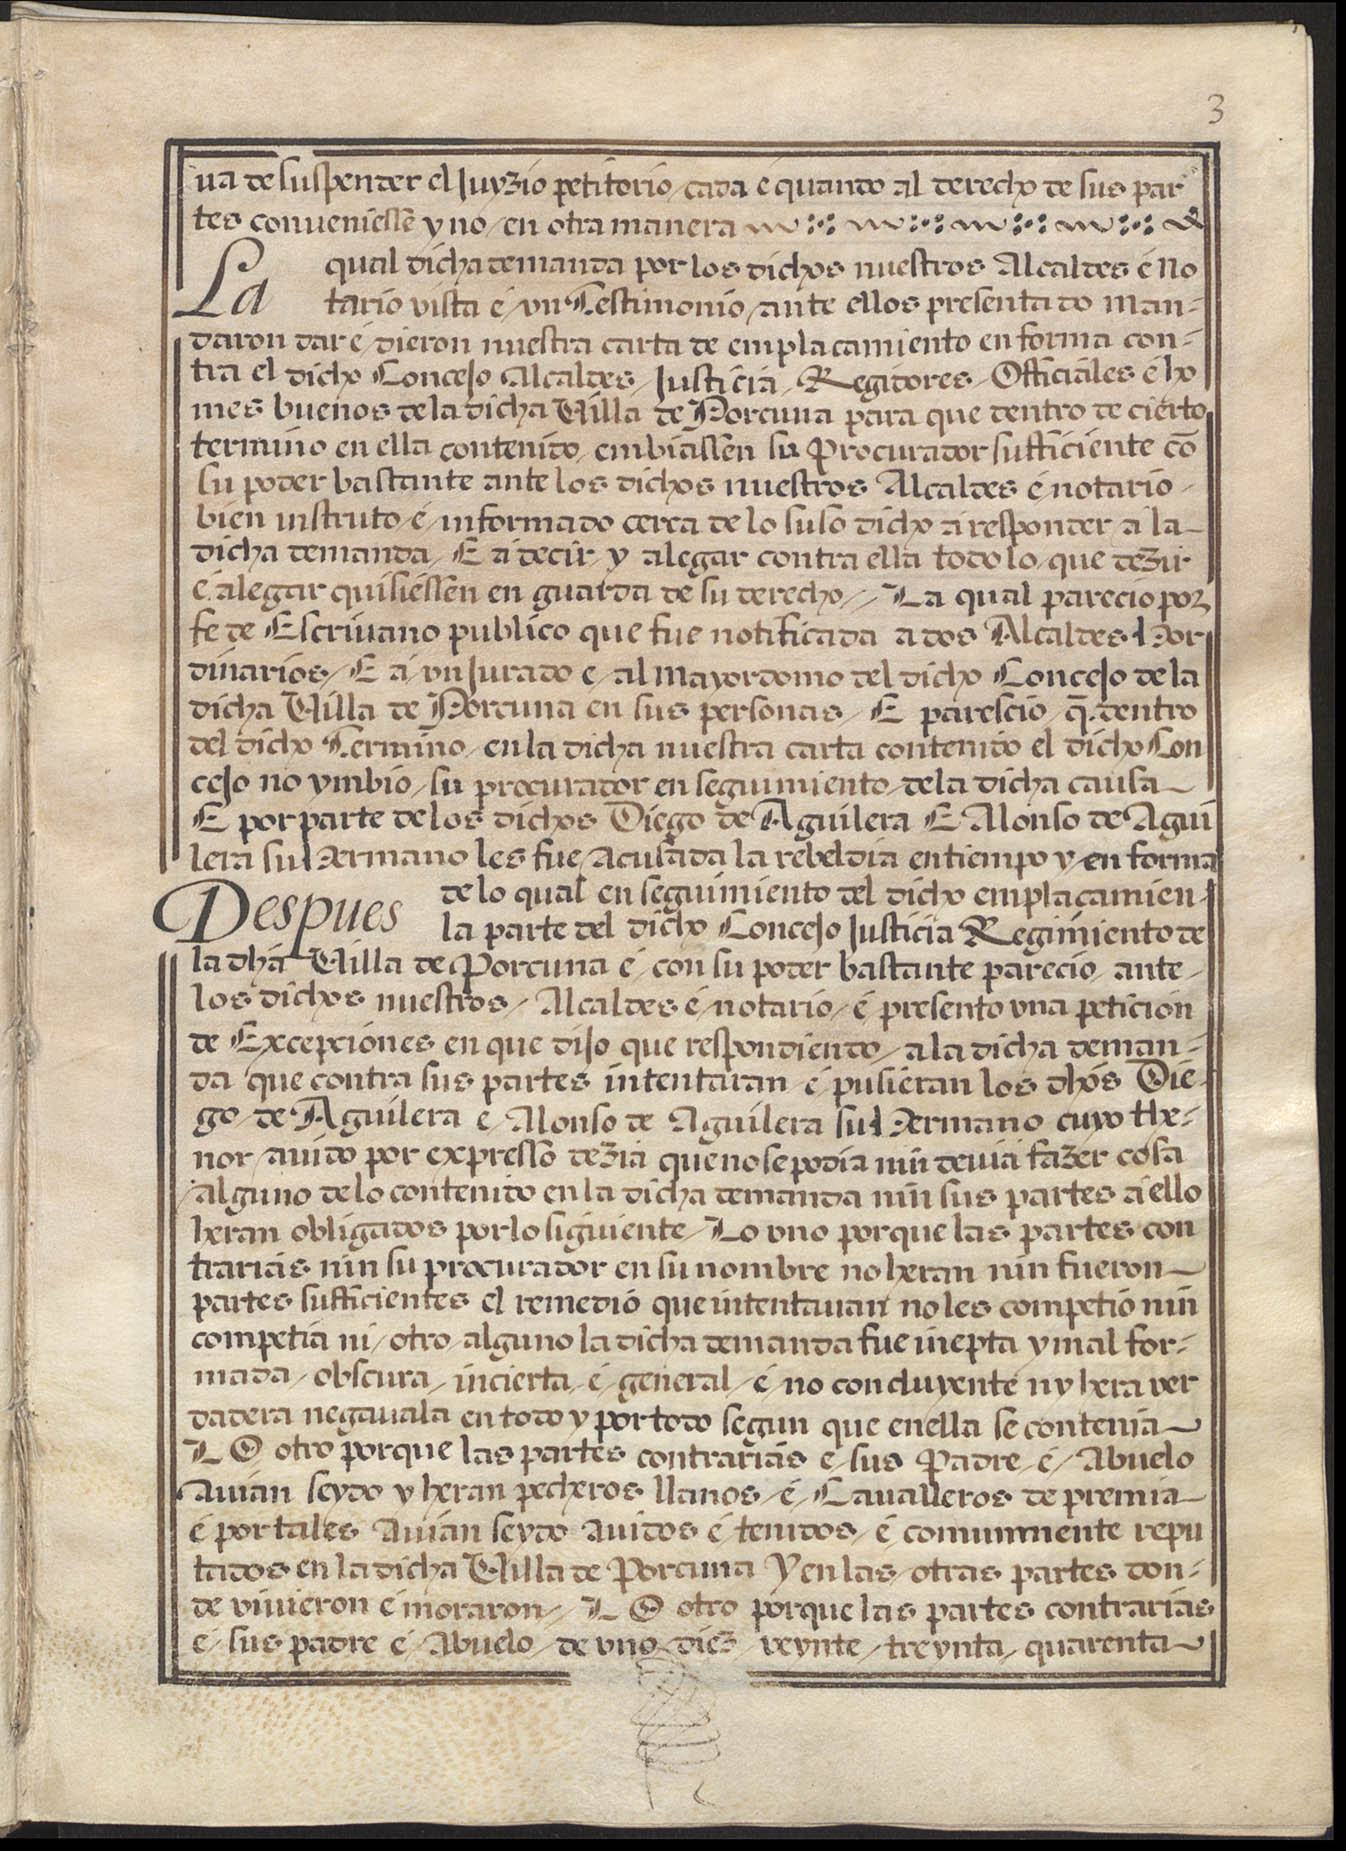 3
ua de suspender el Juyzio petitorio cada é quando al derecho de sus par
tes conueniessē y no en otra manera
La qual dicha demanda por los dichos nuestros Alcaldes é No
tario vista é vn Testimonio ante ellos presentado man-
daron dar é dieron nuestra carta de emplacamiento en forma con-
tra el dicho Concejo Alcaldes Justicia Regidores Officiales é ho
mes buenos de la dicha Villa de Porcuna para que dentro de cierto
termino en ella contenido embiassen su Procurador sufficiente cō
su poder bastante ante los dichos nuestros Alcaldes é notario
bien instruto é informado cerca de lo suso dicho a responder a la
dicha demanda E a decir y alegar contra ella todo lo que dezir
é alegar quisiessen en guarda de su derecho La qual parecio por
fe de Escriuano publico que fue notificada a dos Alcaldes Hor
dinarios E a vn Jurado e al Mayordomo del dicho Concejo de la
dicha Villa de Porcuna en sus personas E parescio q̄ dentro
del dicho Termino en la dicha nuestra carta contenido el dicho Con
cejo no ymbio su procurador en seguimiento de la dicha causa
E por parte de los dichos Diego de Aguilera E Alonso de Agui
lera su Hermano les fue acusada la rebeldia en tiempo y en forma
Despues de lo qual en seguimiento del dicho emplacamien-
la parte del dicho Concejo Justicia Regimiento de
la dha Villa de Porcuna é con su poder bastante parecio ante
los dichos nuestros Alcaldes é notario é presento vna peticion
de Excepciones en que dijo que respondiendo a la dicha deman-
da que contra sus partes intentaran é pusieran los dhos Die-
go de Aguilera e Alonso de Aguilera su Hermano cuyo the-
nor auido por expresso dezia que no se podia nin deuia fazer cosa
alguno de lo contenido en la dicha demanda nin sus partes a ello
heran obligados por lo siguiente Lo vno porque las partes con
trarias nin su procurador en su nombre no heran nin fueron
partes sufficientes el remedio que intentauan no les competio nin
competia ni otro alguno la dicha demanda fue inepta y mal for-
mada obscura incierta é general é no concluyente ny hera ver
dadera negauala en todo y por todo segun que en ella se contenia
LO otro porque las partes contrarias e sus Padre é Abuelo
Auian seydo y heran pecheros llanos é Caualleros de premia
é por tales Auian seydo auidos é tenidos é comunmente repu
tados en la dicha Villa de Porcuna Y en las otras partes don-
de viuieron é moraron LO otro porque las partes contrarias
é sus padre é Abuelo de vno diez veynte treynta quarenta